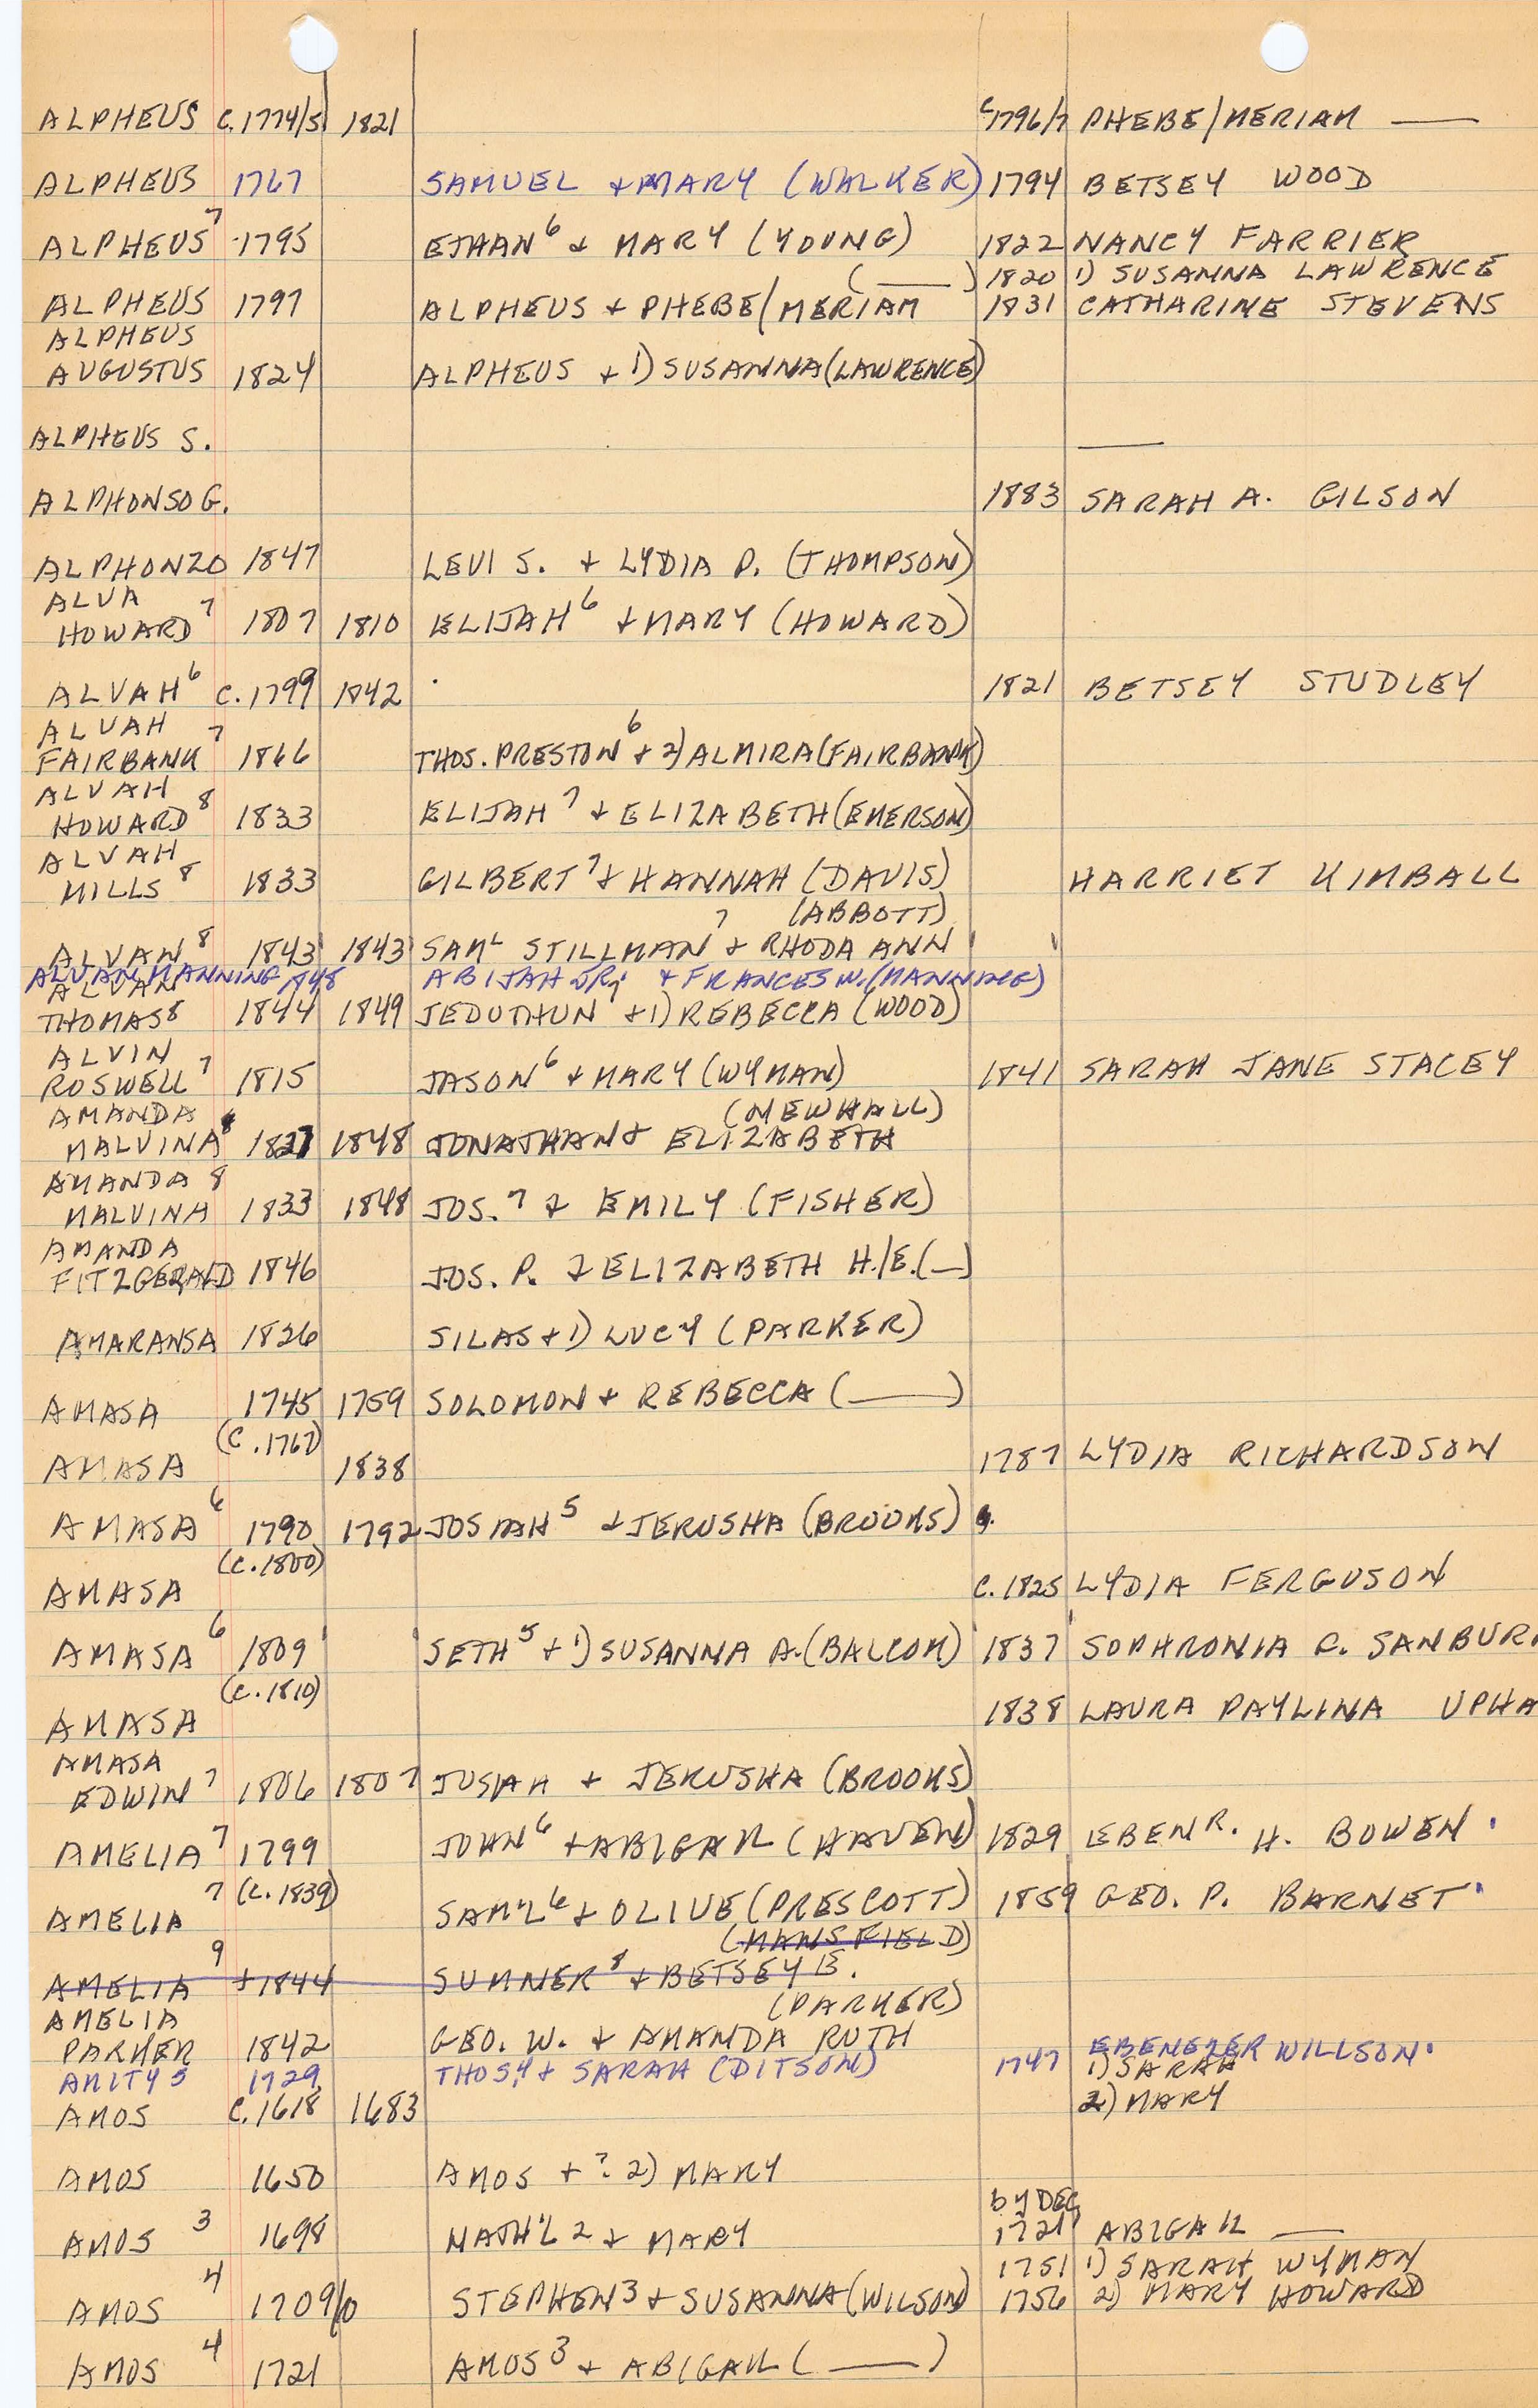 ALPHEUS C.1774/5 1821 C1796/7 PHEBE/MERIAM —
ALPHEUS 1767 SAMUEL + MARY (WALKER) 1794 BETSEY WOOD
ALPHEUS 7 1795 ETHAN 6 + MARY (YOUNG) 1822 NANCY FARRIER
(—) 1820 1) SUSANNA LAWRENCE
ALPHEUS 1797 ALPHEUS + PHEBE/MERIAM 1831 CATHARINE STEVENS
ALPHEUS
AUGUSTUS 1824 ALPHEUS + 1) SUSANNA (LAWRENCE)
ALPHEUS S. —
ALPHONSO G. 1883 SARAH A. GILSON
ALPHONZO 1847 LEVI S. + LYDIA P. (THOMPSON)
ALVA
HOWARD 7 1807 1810 ELIJAH 6 + MARY (HOWARD)
ALVAH 6 C.1799 1842 1821 BETSEY STUDLEY
ALVAH
FAIRBANK 7 1866 THOS. PRESTON 6 + 2) ALMIRA (FAIRBANK)
ALVAH
HOWARD 8 1833 ELIJAH 7 + ELIZABETH (EMERSON)
ALVAH
MILLS 8 1833 GILBERT 7 + HANNAH (DAVIS) HARRIET KIMBALL
(ABBOTT)
ALVAN 8 1843 1843 SAML STILLMAN 7 + RHODA ANN
ALVAN MANNING 1848 ABIJAH JR. + FRANCES W. (MANNING)
ALVAN
THOMAS 8 1844 1849 JEDUTHUN 7 + 1) REBECCA (WOOD)
ALVIN
ROSWELL 7 1815 JASON 6 + MARY (WYMAN) 1841 SARAH JANE STACEY
AMANDA (NEWHALL)
MALVINA 1827 1848 JONATHAN + ELIZABETH
AMANDA 8
MALVINA 1833 1848 JOS. 7 + EMILY (FISHER)
AMANDA
FITZGERALD 1846 JOS. P. + ELIZABETH H./E. (—)
AMARANSA 1826 SILAS + 1) LUCY (PARKER)
AMASA 1745 1759 SOLOMON + REBECCA (—)
(C.1767)
AMASA 1838 1787 LYDIA RICHARDSON
AMASA 6 1790 1792 JOSIAH 5 + JERUSHA (BROOKS)
(C.1800)
AMASA C.1825 LYDIA FERGUSON
AMASA 6 1809 SETH 5 + 1) SUSANNA A. (BALCOM) 1837 SOPHRONIA C. SANBUR
(C.1810)
AMASA 1838 LAURA PAYLINA UPHA
AMASA
EDWIN 7 1806 1807 JOSIAH + JERUSHA (BROOKS)
AMELIA 7 1799 JOHN 6 + ABIGAIL (HAVEN) 1829 EBENR. H. BOWEN
AMELIA 7 (C.1839) SAM'L 6 + OLIVE (PRESCOTT) 1859 GEO. P. BARNET
(MANSFIELD)
AMELIA 9 +1844 SUMNER 8 + BETSEY B.
AMELIA (PARKER)
PARKER 1842 GEO. W. + AMANDA RUTH
AMITY 5 1729 THOS 4 + SARAH (DITSON) 1747 EBENEZER WILLSON
1) SARAH
AMOS C.1618 1683 2) MARY
AMOS 1650 AMOS + ? 2) MARY
by DEC,
AMOS 3 1698 NATH'L 2 + MARY 1721 ABIGAIL —
1751 1) SARAH WYMAN
AMOS 4 1709/0 STEPHEN 3 + SUSANNA (WILSON) 1756 2) MARY HOWARD
AMOS 4 1721 AMOS 3 + ABIGAIL (—)